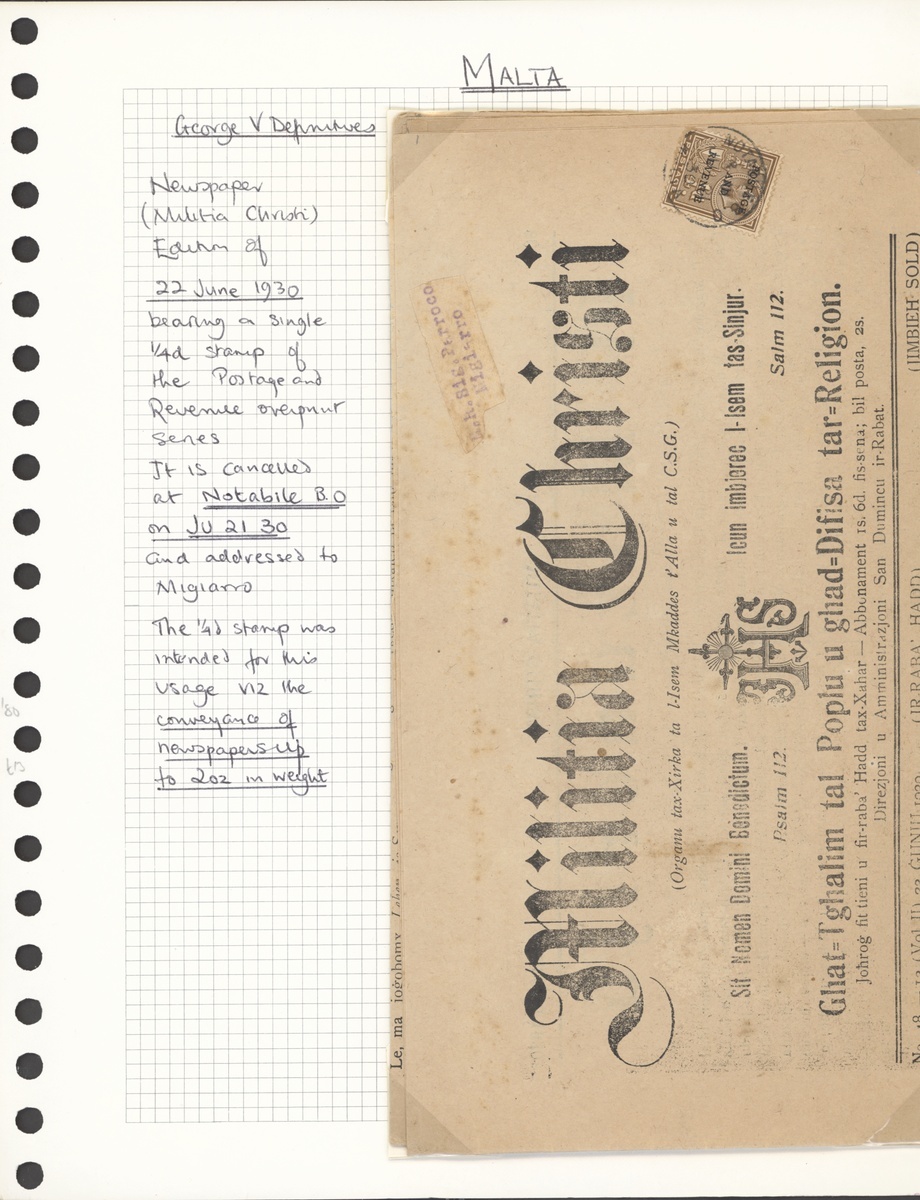 MALTA
George V Definitives
Newspaper
(Militia Christi)
Edition of
22 June 1930
bearing a single
1/4d stamp of
the Postage and
Revenue overprint
series
It is cancelled
at Notabile B.O
on JU 21 30
and addressed to
Migiarro
The 1/4d stamp was
intended for this
usage viz the
conveyance of
newspapers up
to 2oz in weight
POSTAGE
AND
REVENUE
L.R. Sig. Parroco
Migiarro
Militia Christi
(Organu tax-Xirka ta l-Isem Mkaddes t'Alla u tal C.S.G.)
Sit Nomen Domini Benedictum.
Psalm 112.
IHS
Icun imbierec l-Isem tas-Sinjur.
Salm 112.
Ghat=Tghalim tal Poplu u ghad=Difisa tar=Religion.
Johroġ fit tieni u fir-raba' Hadd tax-Xahar — Abbonament 1s. 6d. fis-sena; bil posta, 2s.
Direzjoni u Amministrazjoni San Dumincu ir-Rabat.
(IR RABA' HADD)
(IMBIEH SOLD)
Le, ma